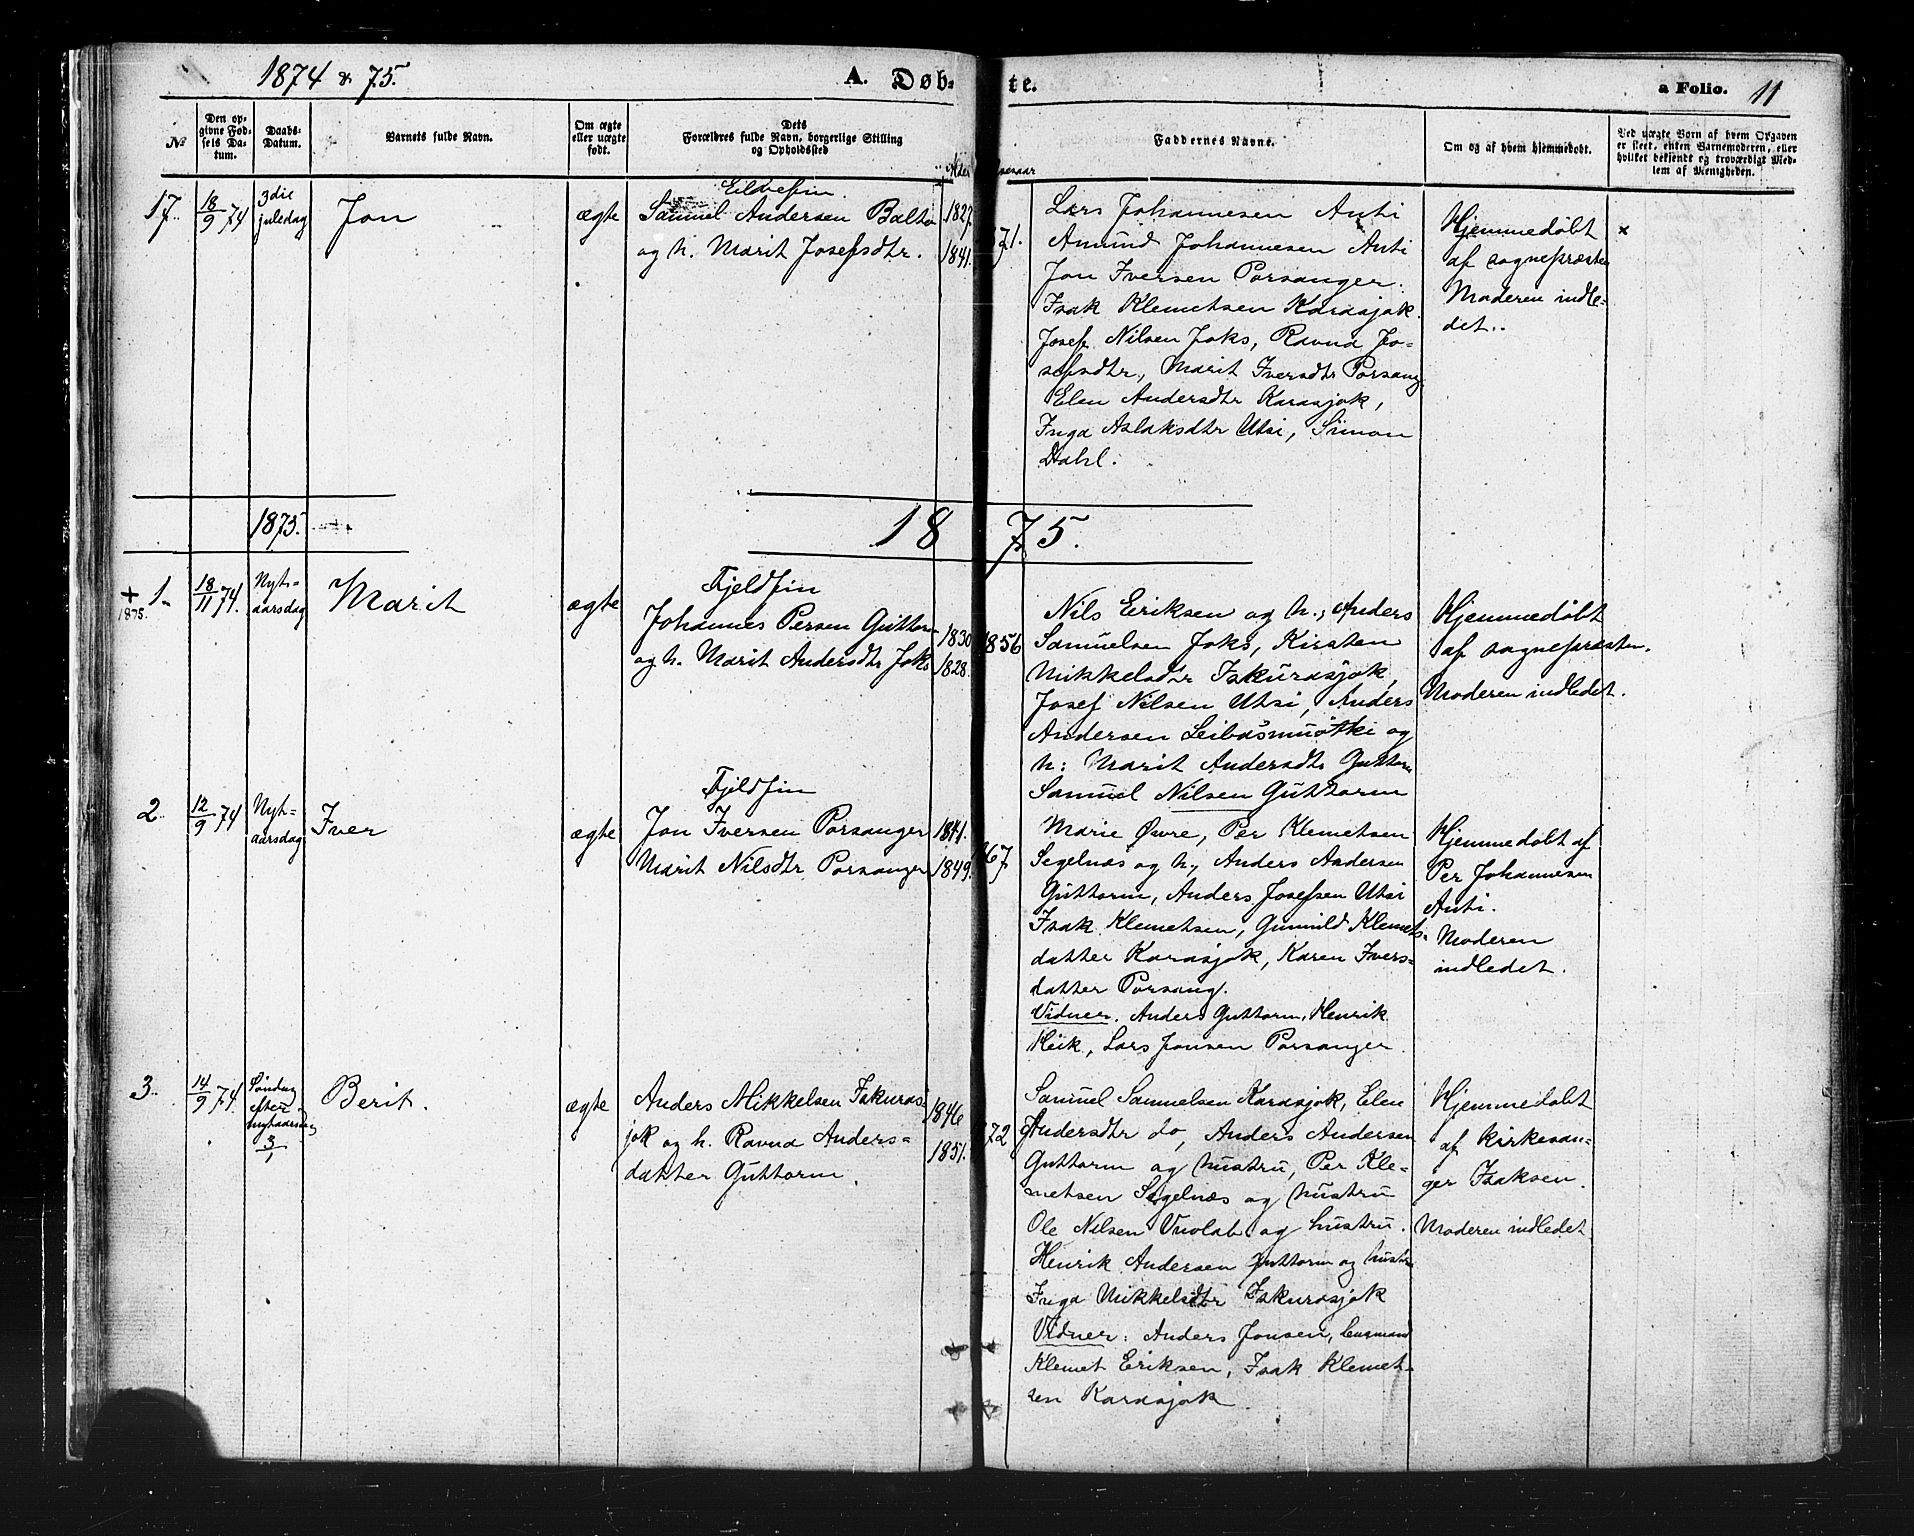 1874 & 75.
A. Døb-
te.
a Folio. 11
No
Den op-
givne Fød-
sels Da-
tum.
Daabs-
Datum.
Barnets fulde Navn.
Om ægte
eller uægte
født.
Dets
Forældres fulde Navn, borgerlige Stilling
og Opholdssted
Faddernes Navne.
Om og af hvem hjemmedøbt.
Ved uægte Børn af hvem Opgaven
er skeet, enten Barnemoderen, eller
hvilket bekjendt og troværdigt Med-
lem af Menigheden.
17.
18/9 74
3die
juledag
Jon
ægte
Samuel Andersen Balto
og h. Marit Josefsdtr.
1827.
1841.
71.
Lars Johannesen Anti
Amund Johannesen Anti
Jon Iversen Porsanger.
Isak Klemetsen Karasjok.
Josef Nilsen Joks, Ravna Jo-
sefsdtr., Marit Iversdtr Porsang.
Elen Andersdtr Karasjok,
Inga Aslaksdtr Utsi, Simon
Dahl.
Hjemmedøbt
af sognepræsten
Moderen indle-
det.
x
1875.
1875.
+
1875.
1.
18/11 74.
Nyt-
aarsdag
Marit
ægte
Fjeldfin
Johannes Persen Guttorm
og h. Marit Andersdtr Joks
1830
1828.
856
Nils Eriksen og h., Anders
Samuelsen Joks, Kirsten
Mikkelsdtr Iskurasjok,
Josef Nilsen Utsi, Anders
Andersen Leibasmuotki og
h: Marit Andersdtr Guttorm
Samuel Nilsen Guttorm
Hjemmedøbt
af sognepræsten.
Moderen indledet.
2.
12/9 74
Nyt-
aarsdag
Iver
ægte
Fjeldfin
Jon Iversen Porsanger
Marit Nilsdtr Porsanger
1841.
1849.
67.
Marie Øvre, Per Klemetsen
Segelnæs og h., Anders Andersen
Guttorm, Anders Josefsen Utsi
Isak Klemetsen, Gunnild Klemets-
datter Karasjok, Karen Ivers-
datter Porsang.
Vidner. Anders Guttorm, Henrik
Keik, Lars Jonsen Porsanger.
Hjemmedøbt af
Per Johannesen
Anti.
Moderen
indledet.
3.
14/9 74.
Søndag
efter
nytaarsdag
3/1
Berit.
ægte
Anders Mikkelsen Iskuras-
jok og h. Ravna Anders-
datter Guttorm.
1846
1851.
72
Samuel Samuelsen Karasjok, Elen
Andersdtr do, Anders Andersen
Guttorm og hustru, Per Kle-
metsen Segelnæs og hustru
Ole Nilsen Vuolab og hustru.
Henrik Andersen Guttorm og hustru
Inga Mikkelsdtr Iskurasjok
Vidner: Anders Jonsen,
Klemet Eriksen, Isak Klemet-
sen Karasjok
Hjemmedøbt
af kirkesan-
ger Isaksen.
Moderen indledet